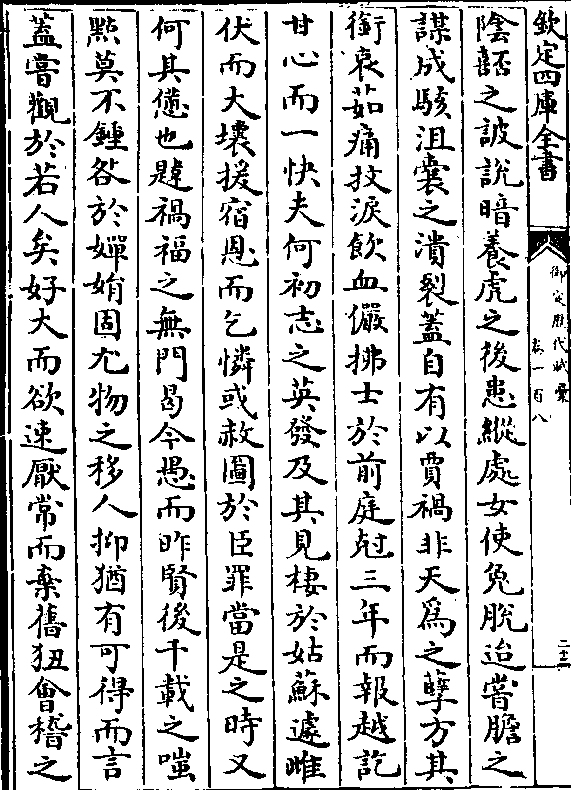 欽定四庫全書
御定歷代賦彙
卷一百八
二十三
陰嚭之詖說暗養虎之後患縱處女使兔脫迨嘗膽之
謀成駭沮囊之潰裂蓋自有以賈禍非天爲之孽方其
銜哀茹痛抆淚飲血儼拂士於前庭尅三年而報越訖
甘心而一快夫何初志之英發及其見棲於姑蘇遽雌
伏而大壞援宿恩而乞憐或赦圖於臣罪當是之時又
何其憊也韙禍福之無門曷今愚而昨賢後千載之嗤
點莫不鍾咎於嬋娟固尤物之移人抑猶有可得而言
蓋嘗觀於若人矣好大而欲速厭常而棄舊狃會稽之